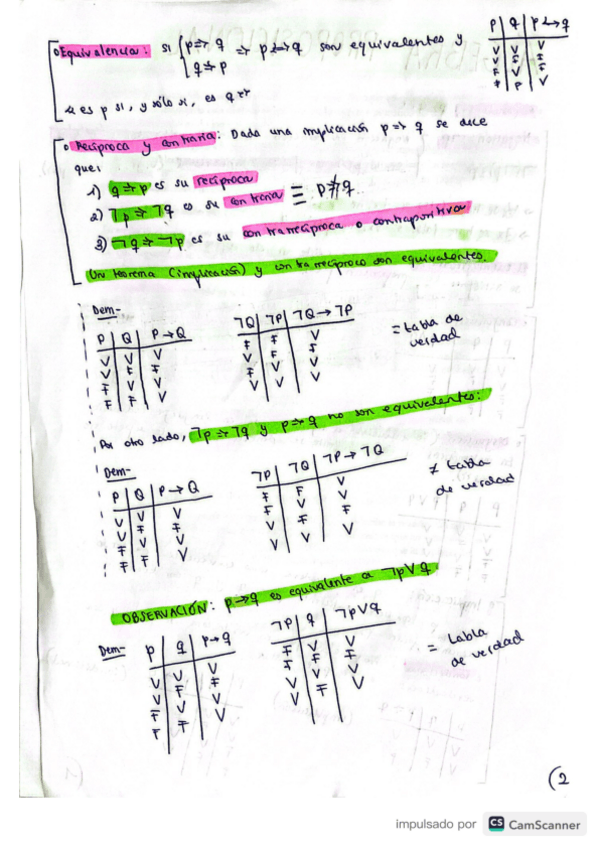 Equivalencia: si { p⇒q ⇒ p↔q son equivalentes y
q⇒p
es p si, y sólo si, es q
p | q | p↔q
V | V | V
V | F | F
F | V | F
F | F | V
Recíproca y contraria: Dada una implicación p⇒q se dice
que:
1) q⇒p es su recíproca
2) ¬p⇒¬q es su contraria ≡ p⇏q
3) ¬q⇒¬p es su contrarrecíproca o contrapositiva
Un teorema (implicación) y contrarrecíproco son equivalentes.
Dem-
P | Q | P→Q
V | V | V
V | F | F
F | V | V
F | F | V
¬Q | ¬P | ¬Q→¬P
F | F | V
V | F | F
F | V | V
V | V | V
= tabla de
verdad
Por otro lado, ¬p⇒¬q y p⇒q no son equivalentes:
Dem-
P | Q | P→Q
V | V | V
V | F | F
F | V | V
F | F | V
¬P | ¬Q | ¬P→¬Q
F | F | V
F | V | V
V | F | F
V | V | V
≠ tabla
de verdad
OBSERVACIÓN: p→q es equivalente a ¬p∨q
Dem-
p | q | p→q
V | V | V
V | F | F
F | V | V
F | F | V
¬P | q | ¬p∨q
F | V | V
F | F | F
V | V | V
V | F | V
= tabla
de verdad
(2
impulsado por CS CamScanner